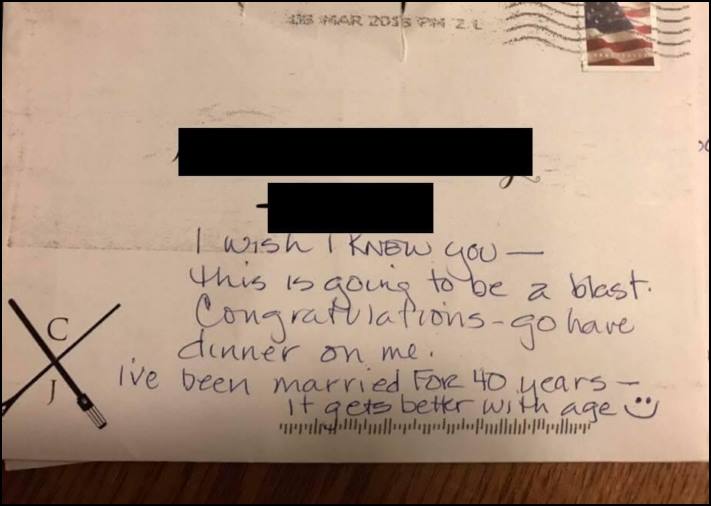 MAR PM 2 L
I wish I KNEW you —
this is going to be a blast.
Congratulations - go have
dinner on me.
I've been married FOR 40 years —
It gets better with age
C
J